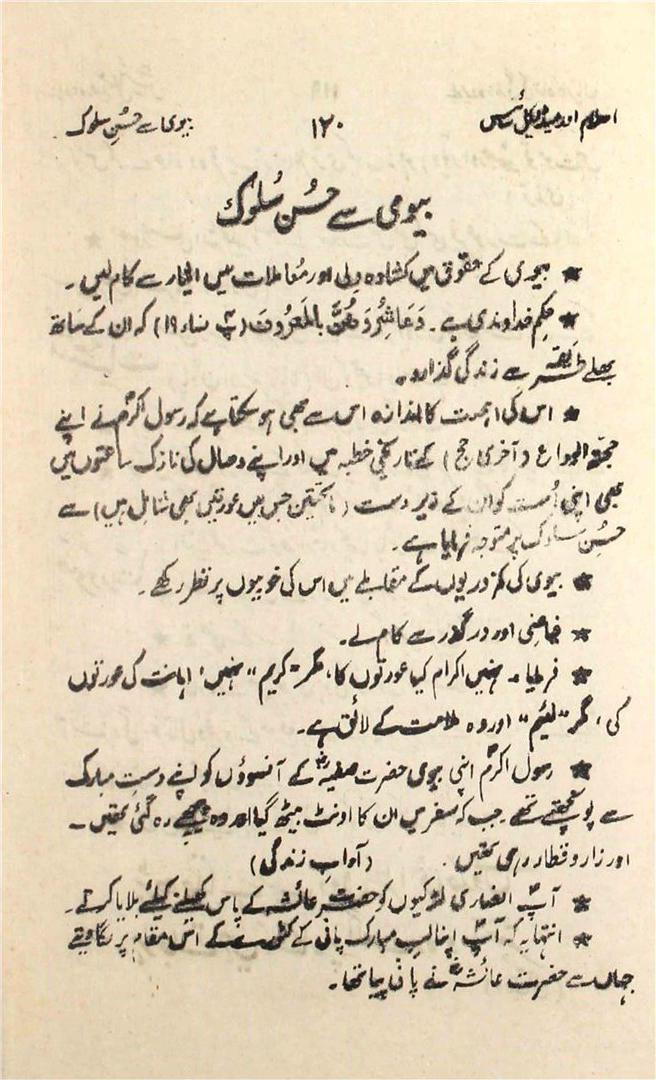 اسلام اور میڈیکل سائنس ۱۲۰ بیوی سے حُسنِ سلوک
بیوی سے حُسنِ سُلوک
★ بیوی کے حقوق میں کشادہ دِلی اور مُعاملات میں ایثار سے کام لیں۔
★ حکم خداوندی ہے۔ وَعَاشِرُوهُنَّ بِالْمَعْرُوفِ (پ نساء ۱۹) کہ ان کے ساتھ
بھلے طریقہ سے زندگی گذارو۔
★ اس کی اہمیت کا اندازہ اس سے بھی ہو سکتا ہے کہ رسول اکرمؐ نے اپنے
حجۃ الوداع (آخری حج) کے تاریخی خطبہ میں اور اپنے وصال کی نازک ساعتوں میں
بھی اپنی اُمت کو ان کے زیردست (ماتحتین جس میں عورتیں بھی شامل ہیں) سے
حُسنِ سلوک پر متوجہ فرمایا ہے۔
★ بیوی کی کمزوریوں کے مقابلے میں اس کی خوبیوں پر نظر رکھے۔
★ فیاضی اور درگذر سے کام لے۔
★ فرمایا۔ نہیں اکرام کیا عورتوں کا، مگر "کریم" نہیں اہانت کی عورتوں
کی، مگر "لئیم" اور وہ ملامت کے لائق ہے۔
★ رسول اکرمؐ اپنی بیوی حضرت صفیہؓ کے آنسوؤں کو اپنے دستِ مبارک
سے پونچھتے تھے۔ جب کہ سفر میں ان کا اونٹ بیٹھ گیا اور وہ پیچھے رہ گئی تھیں۔
اور زار و قطار رو رہی تھیں۔ (آدابِ زندگی)
★ آپؐ انصاری لڑکیوں کو حضرت عائشہ کے پاس کھیلنے کیلئے بلایا کرتے۔
★ انتہا یہ کہ آپؐ اپنا لبِ مبارک پانی کے کٹورے کے اس مقام پر لگا دیتے
جہاں سے حضرت عائشہؓ نے پانی پیا تھا۔